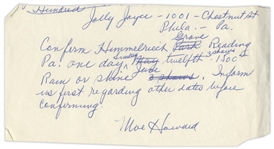 Hundred
Jolly Joyce - 1001 - Chestnut St
Phila. - Pa.
Grove
Confirm Himmelreich Park Reading
Sunday 2 shows
Pa. one day, May twelfth - 1500
June
Rain or shine 2 shows. Inform
us first regarding other dates before
confirming.
Moe Howard